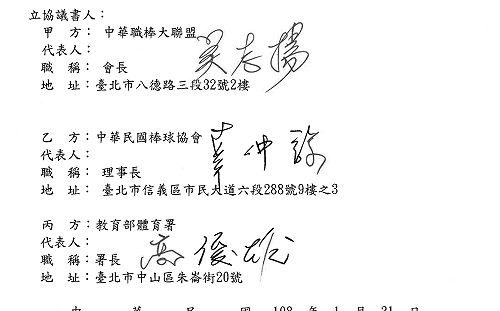 立協議書人：
甲　方：中華職棒大聯盟
代表人：吳志揚
職　稱：會長
地　址：臺北市八德路三段32號2樓
乙　方：中華民國棒球協會
代表人：辜仲諒
職　稱：理事長
地　址：臺北市信義區市民大道六段288號9樓之3
丙　方：教育部體育署
代表人：高俊雄
職　稱：署長
地　址：臺北市中山區朱崙街20號
中　華　民　國　108　年　1　月　31　日